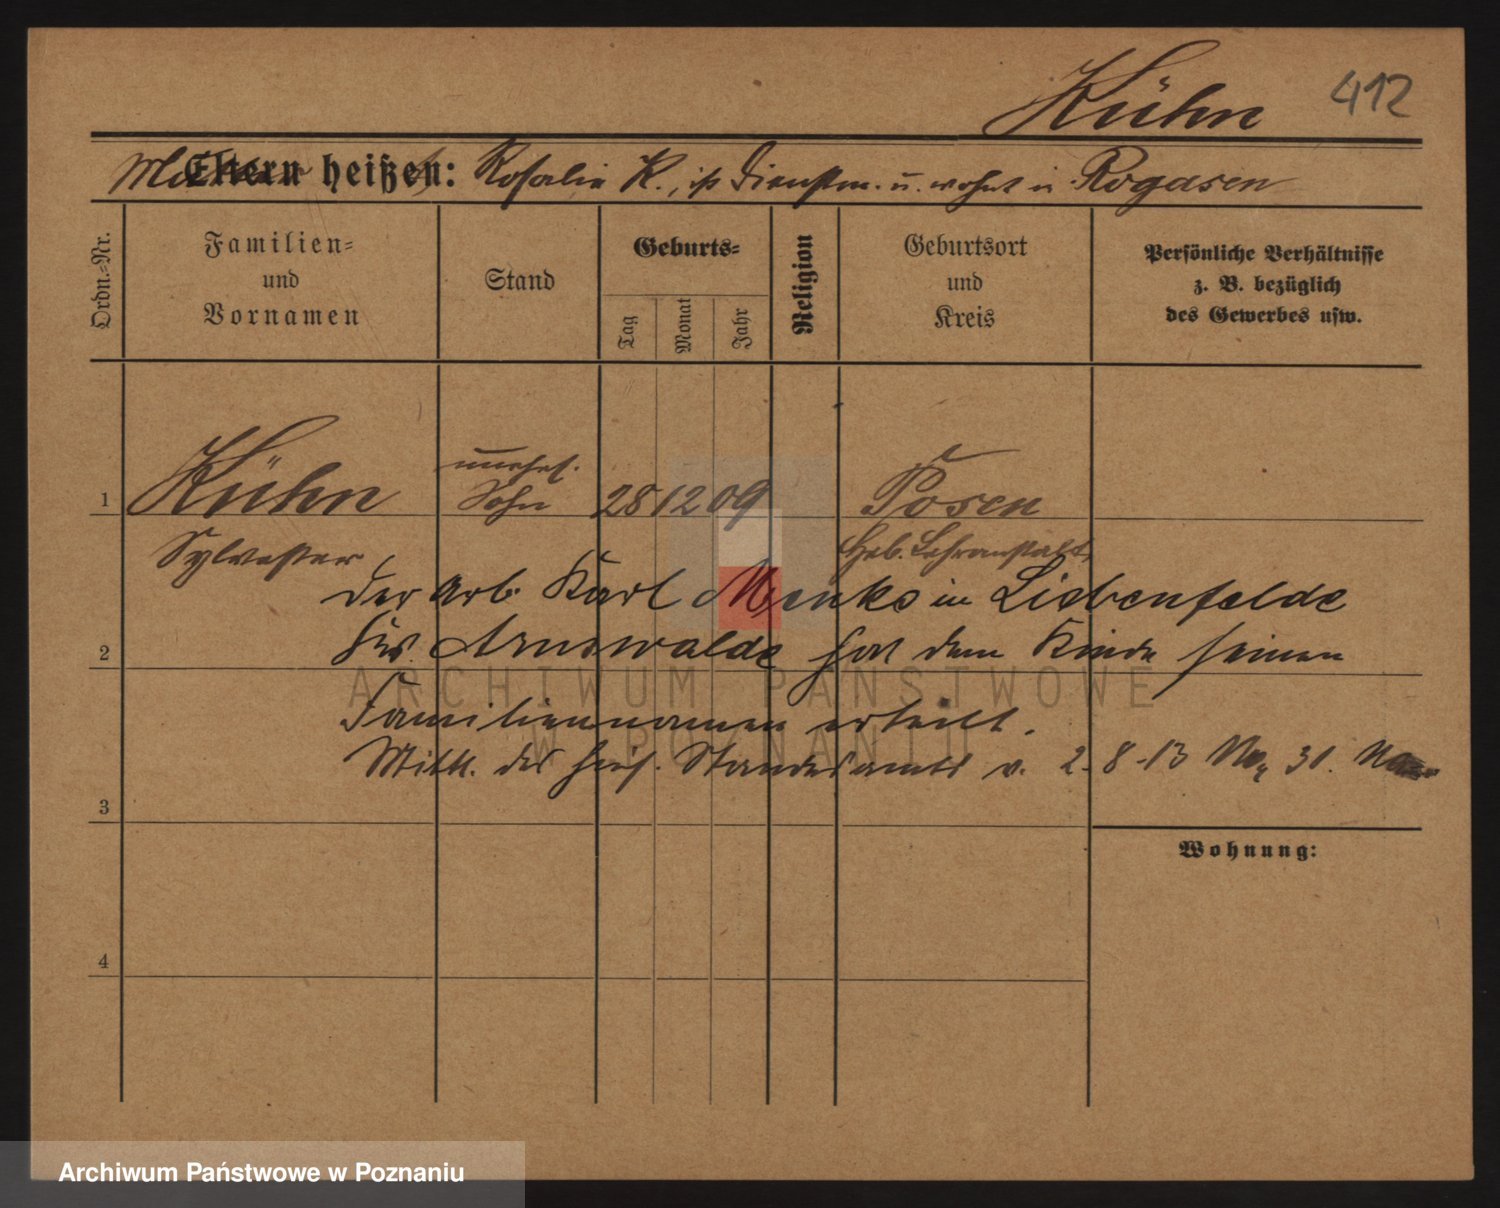 Kühn 412
Mutter heißen: Rosalie K., ist Dienstm. u. wohnt in Rogasen
Eltern
Ordn.-Nr.
Familien-
und
Vornamen
Stand
Geburts-
Tag
Monat
Jahr
Religion
Geburtsort
und
Kreis
Persönliche Verhältnisse
z. B. bezüglich
des Gewerbes usw.
unehel.
1 Kühn Sohn 28 12 09 Posen
Sylvester Heb. Lehranstalt
Der Arb. Karl Menks in Liebenfelde
Arnswalde hat dem Kinde seinen
2
Familiennamen erteilt.
Mittl. des hies. Standesamts v. 2.8.13 No. 31.
3
Wohnung:
4
ARCHIWUM PAŃSTWOWE
W POZNANIU
Archiwum Państwowe w Poznaniu